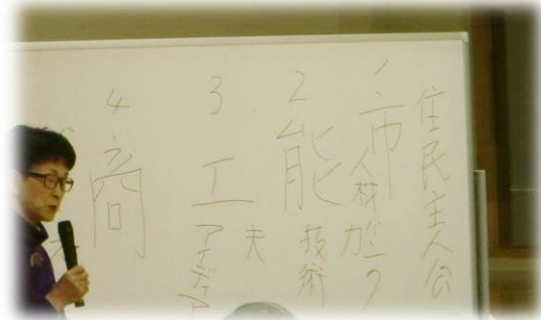 住民主人公
1 市
人材
2 能
技術
3 工夫
アイディア
4 商